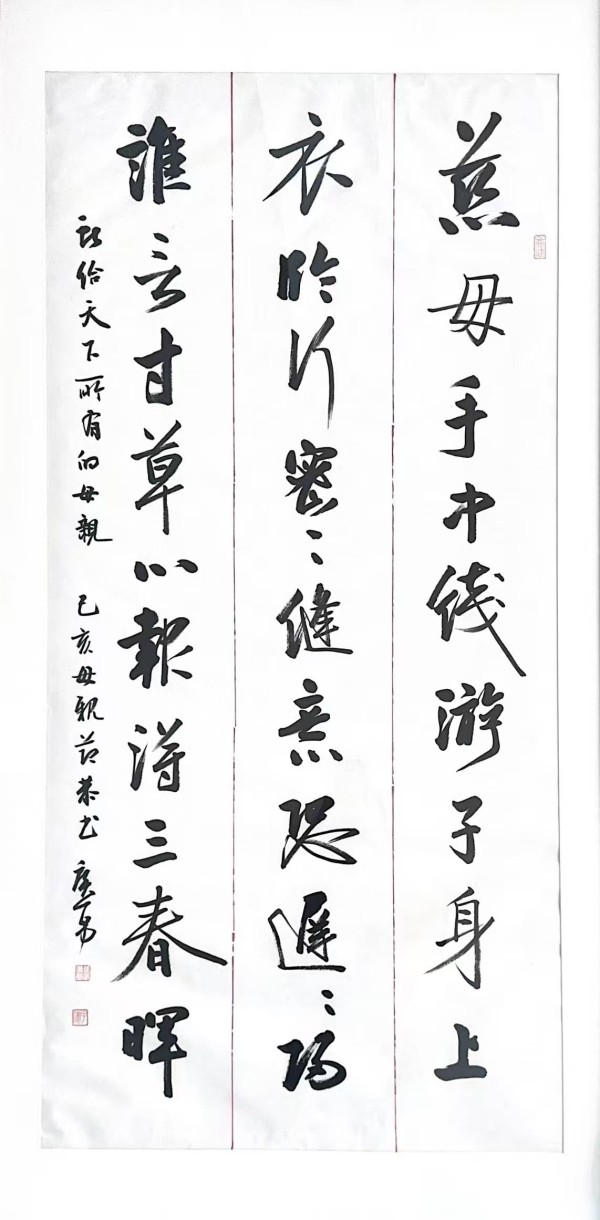 慈母手中线游子身上
衣临行密〻缝意恐遲〻归
誰言寸草心報得三春暉
献给天下所有的母親 己亥母親节恭书